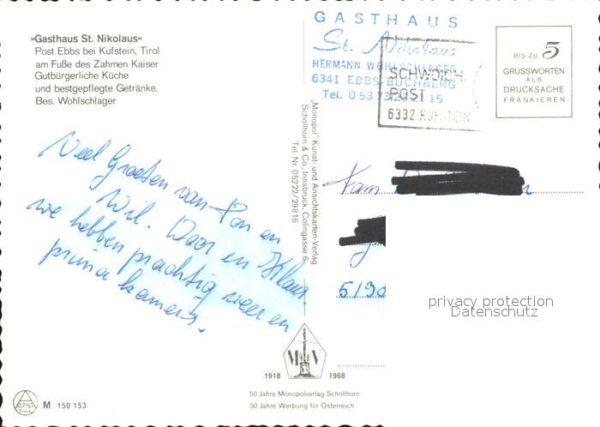 »Gasthaus St. Nikolaus«
Post Ebbs bei Kufstein, Tirol
am Fuße des Zahmen Kaiser
Gutbürgerliche Küche
und bestgepflegte Getränke.
Bes. Wohlschlager
GASTHAUS
St. Nikolaus
HERMANN WOHLSCHLAGER
6341 EBBS-BUCHBERG
Tel. 0 53 73
SCHWOICH
POST
6332 KUFSTEIN
BIS ZU 5
GRUSSWORTEN
ALS
DRUCKSACHE
FRANKIEREN
„Monopol" Kunst- und Ansichtskarten-Verlag
Schöllhorn & Co., Innsbruck, Colingasse 5
Tel. Nr. 05222/29816
Veel Groeten van Ton en
Wil. Door en Klaus.
we hebben prachtig weer en
prima kamers.
Fam
5190
privacy protection
Datenschutz
M V
1918 1968
50 Jahre Monopolverlag Schöllhorn
50 Jahre Werbung für Österreich
M 150 153